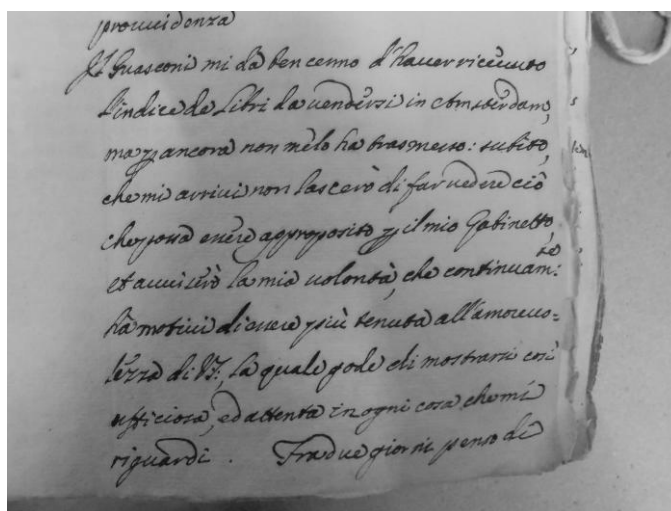 provvidenza
Il Guasconi mi dà ben cenno d'haver ricevuto
l'indice de Libri da vendersi in Amsterdam,
ma p ancora non me lo ha trasmesso: subito,
che mi arrivi non lascerò di far vedere ciò
che possa essere approposito p il mio Gabinetto,
et avviserò la mia volontà, che continuam:te
hà motivi di essere più tenuta all'amorevo=
lezza di VS:, la quale gode di mostrarsi così
ufficiosa, ed attenta in ogni cosa che mi
riguardi. Fra due giorni penso di